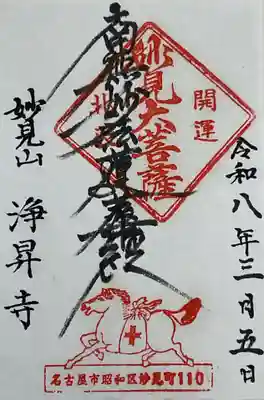 開運
妙見大菩薩
北辰
南無妙法蓮華経
令和八年三月五日
妙見山
浄昇寺
名古屋市昭和区妙見町110